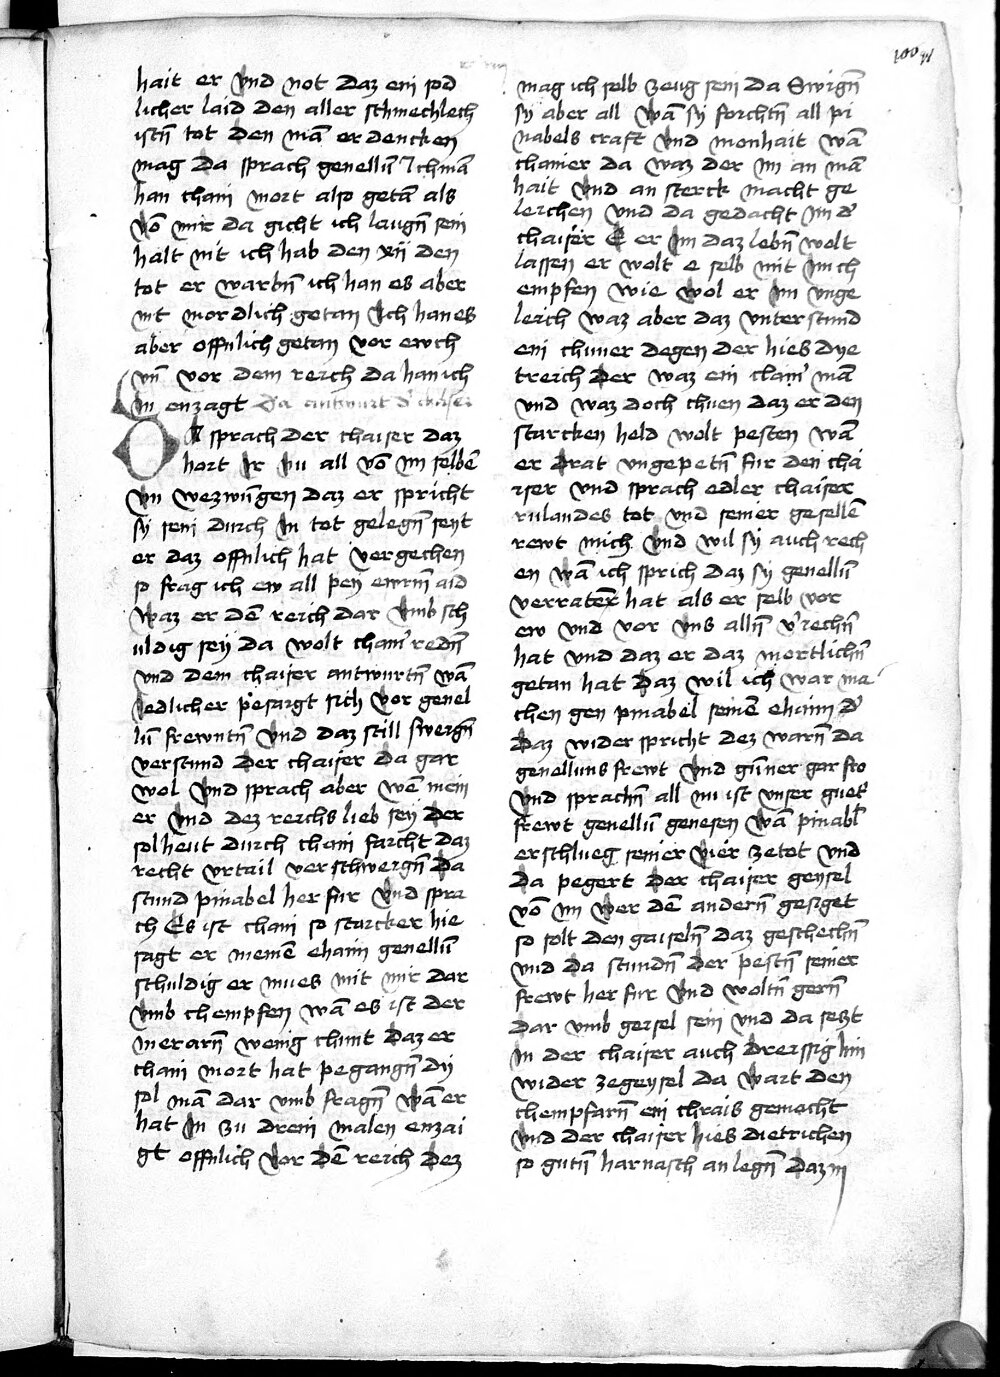 100
hait er vnd not daz ein sod
licher laid den aller schmechlech
istn̄ tot den mā erdencken
mag da sprach genellū ichmā
han chain mort also getā als
vō mir da gicht ich laugn̄ sein
halt nit ich hab den xij den
tot er warbn̄ ich han es aber
nit mordlich getan ich han es
aber offnlich getan vor ewch
vn̄ vor dem reich da han ich
in enzagt da antwurt d' chaiser
DA sprach der chaiser daz
hort ir nu all vō im selbē
vn wezwūgen daz er spricht
sy sein durch in tot gelegn̄ seyt
er daz offnlich hat vergechen
so frag ich ew all pey ewrm̄ aid
waz er dē reich dar vmb sch
uldig seÿ da wolt cham' redn̄
vnd dem chaiser antwurtn̄ wā
iedlicher pesargt sich vor genel
lū frewntn̄ vnd daz still swergn̄
verstund der chaiser da gar
wol vnd sprach aber wē mein
er vnd dez reichs lieb sey der
sol heut durch chain farcht daz
recht vrtail verschwergn̄ da
stund pinabel her fur vnd spra
ch Es ist chain so starcker hie
sagt er meinē ehaim genellū
schuldig er mues mit mir dar
vmb chempfen wā es ist der
inerarn̄ wenig chunt daz er
chain mort hat pegangn̄ dy
sol mā dar vmb fragn̄ wā er
hat in zu drein malen enzai
gt offnlich vor dē reich dez
mag ich selb zeug sein da Swign̄
sy aber all wā sy forchtn̄ all pi
nabels craft vnd monhait wā
chainer da waz der im an mā
hait vnd an sterck macht ge
leichen vnd da gedacht im d'
chaiser E er im daz lebn̄ wolt
lassen er wolt e selb mit im ch
empfen wie wol er im vnge
leich waz aber daz vnterstund
ein chuner degen der hies dye
treich der waz ein clain' mā
vnd waz doch chuen daz er den
starcken held wolt pesten wā
er drat vngepetn̄ fur den cha
iser vnd sprach edler chaiser
rulandes tot vnd seiner gesellē
rewt mich vnd wil sy auch rech
en wā ich sprich daz sy genellū
verraten hat als er selb vor
ew vnd vor vns alln̄ v'rechn̄
hat vnd daz er daz mortlichn̄
getan hat daz wil ich war ma
chen gen pinabel seinē ehaim d'
daz wider spricht dez warn̄ da
genelluns frewt vnd gūner gar fro
vnd sprachn̄ all nu ist vnser guet
frewt genellū genesen wā pinabl
erschlueg seiner vier ze tot vnd
da pegert der chaiser geysel
vō im wer dē andern̄ gesiget
so solt den gaiseln̄ daz geschechn̄
vnd da stundn̄ der pestn̄ seiner
frewt her fur vnd woltn̄ gern̄
dar vmb geisel sein vnd da setzt
in der chaiser auch dreissig hin
wider ze geysel da wart den
chempfarn̄ ein chrais gemacht
vnd der chaiser hies dietrichen
so gutn̄ harnasch an legn̄ daz in